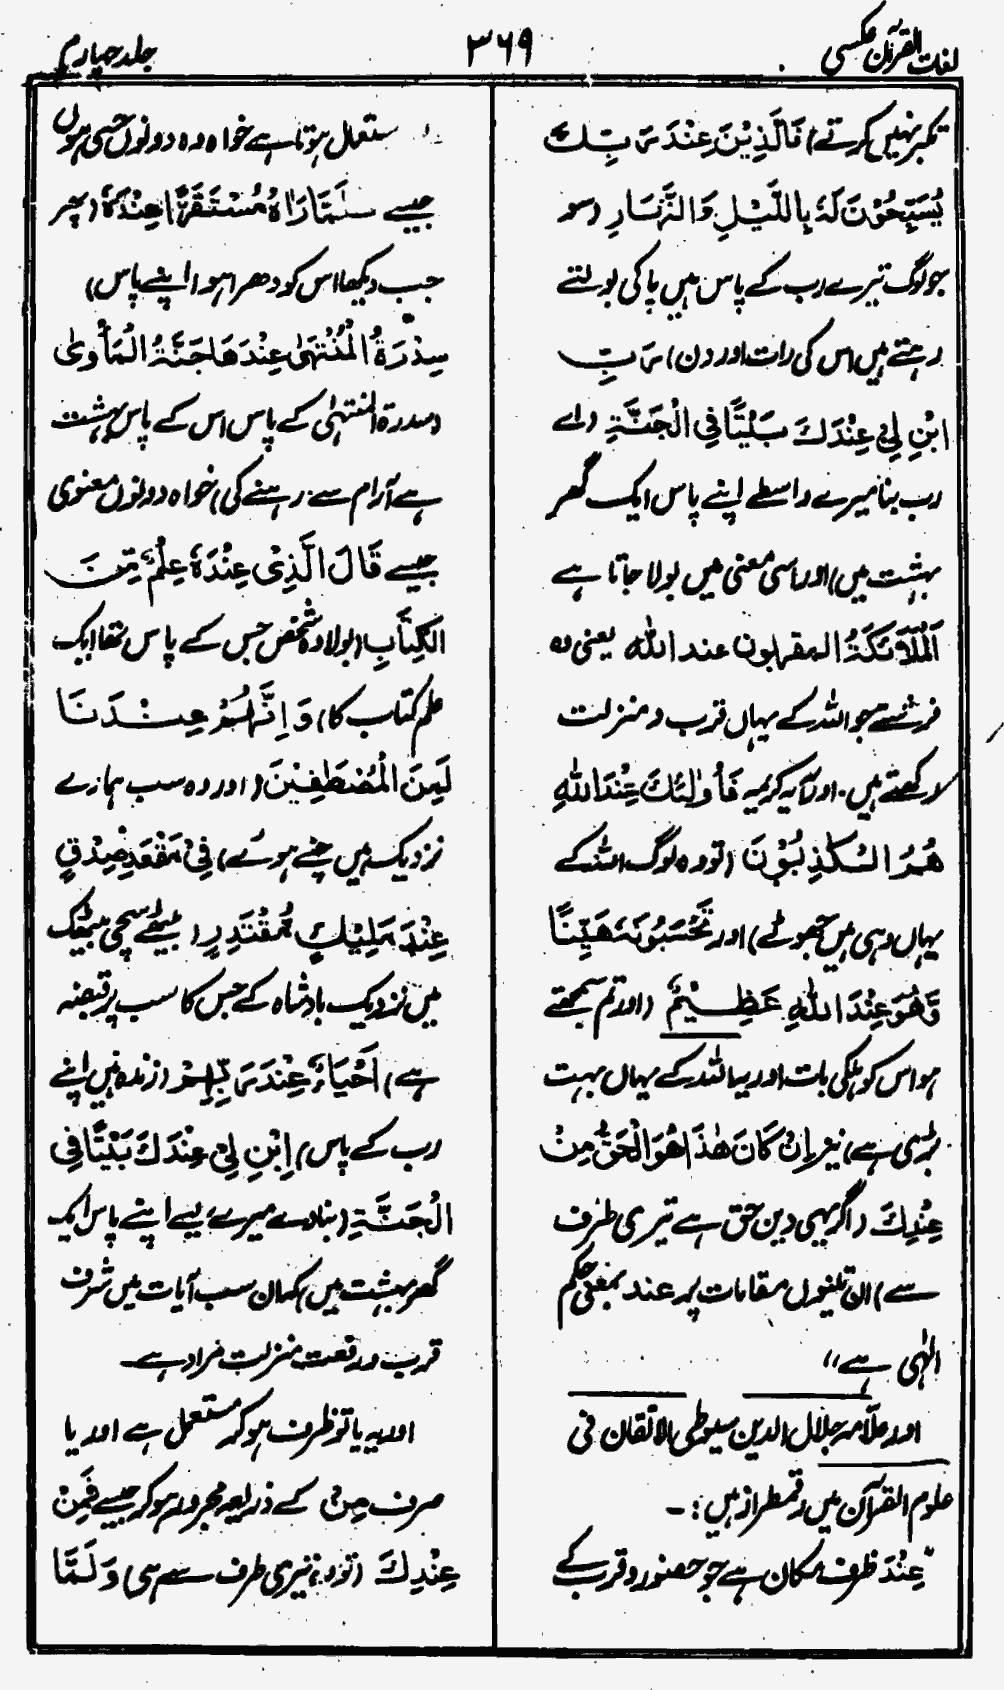 لغات القرآن عکسی
۳۶۹
جلد چہارم
تکبر نہیں کرتے) فَالَّذِیْنَ عِنْدَ رَبِّکَ
یُسَبِّحُوْنَ لَہٗ بِاللَّیْلِ وَالنَّہَارِ (سو
جو لوگ تیرے رب کے پاس ہیں پاکی بولتے
رہتے ہیں اس کی رات اور دن) رَبِّ
ابْنِ لِیْ عِنْدَکَ بَیْتًا فِی الْجَنَّۃِ (اے
رب بنا میرے واسطے اپنے پاس ایک گھر
بہشت میں) اور اسی معنی میں بولا جاتا ہے
اَلْمَلَآئِکَۃُ المقربون عند اللہ یعنی وہ
فرشتے جو اللہ کے یہاں قرب و منزلت
رکھتے ہیں۔ اور آیہ کریمہ فَاُولٰئِکَ عِنْدَ اللّٰہِ
ھُمُ الْکٰذِبُوْنَ (تو وہ لوگ اللہ کے
یہاں وہی ہیں جھوٹے) اور تَحْسَبُوْنَہٗ ھَیِّنًا
وَّھُوَ عِنْدَ اللّٰہِ عَظِیْمٌ (اور تم سمجھتے
ہو اس کو ہلکی بات اور یہ اللہ کے یہاں بہت
بڑی ہے) نیز اِنْ کَانَ ھٰذَا ھُوَ الْحَقَّ مِنْ
عِنْدِکَ (اگر یہی دین حق ہے تیری طرف
سے) ان تینوں مقامات پر عند بمعنی حکم
الٰہی ہے"
اور علّامہ جلال الدین سیوطی الاتقان فی
علوم القرآن میں رقمطراز ہیں:۔
"عِنْدَ ظرف مکان ہے جو حضور و قرب کے
ستعمل ہوتا ہے خواہ وہ دونوں حسی ہوں
جیسے فَلَمَّا رَاٰہُ مُسْتَقَرًّا عِنْدَہٗ (پھر
جب دیکھا اس کو دھرا ہوا اپنے پاس)
سِدْرَۃُ الْمُنْتَہٰی عِنْدَھَا جَنَّۃُ الْمَأْوٰی
(سدرۃ المنتہیٰ کے پاس اس کے پاس بہشت
ہے آرام سے رہنے کی) خواہ دونوں معنوی
جیسے قَالَ الَّذِیْ عِنْدَہٗ عِلْمٌ مِّنَ
الْکِتٰبِ (بولا وہ شخص جس کے پاس تھا ایک
علم کتاب کا) وَاِنَّہُمْ عِنْدَنَا
لَمِنَ الْمُصْطَفَیْنَ (اور وہ سب ہمارے
نزدیک ہیں چنے ہوئے) فِیْ مَقْعَدِ صِدْقٍ
عِنْدَ مَلِیْکٍ مُّقْتَدِرٍ (بیٹھے سچی بیٹھک
میں نزدیک بادشاہ کے جس کا سب پر قبضہ
ہے) اَحْیَاءٌ عِنْدَ رَبِّہِمْ (زندہ ہیں اپنے
رب کے پاس) اِبْنِ لِیْ عِنْدَکَ بَیْتًا فِی
الْجَنَّۃِ (بنا دے میرے لیے اپنے پاس ایک
گھر بہشت میں) کہ ان سب آیات میں شرف
قرب و رفعت منزلت مراد ہے۔
اور یہ یا تو ظرف ہو کر مستعمل ہے اور یا
صرف مِنْ کے ذریعہ مجرور ہو کر جیسے فَمِنْ
عِنْدِکَ (تو وہ تیری طرف سے ہے) وَلَمَّا